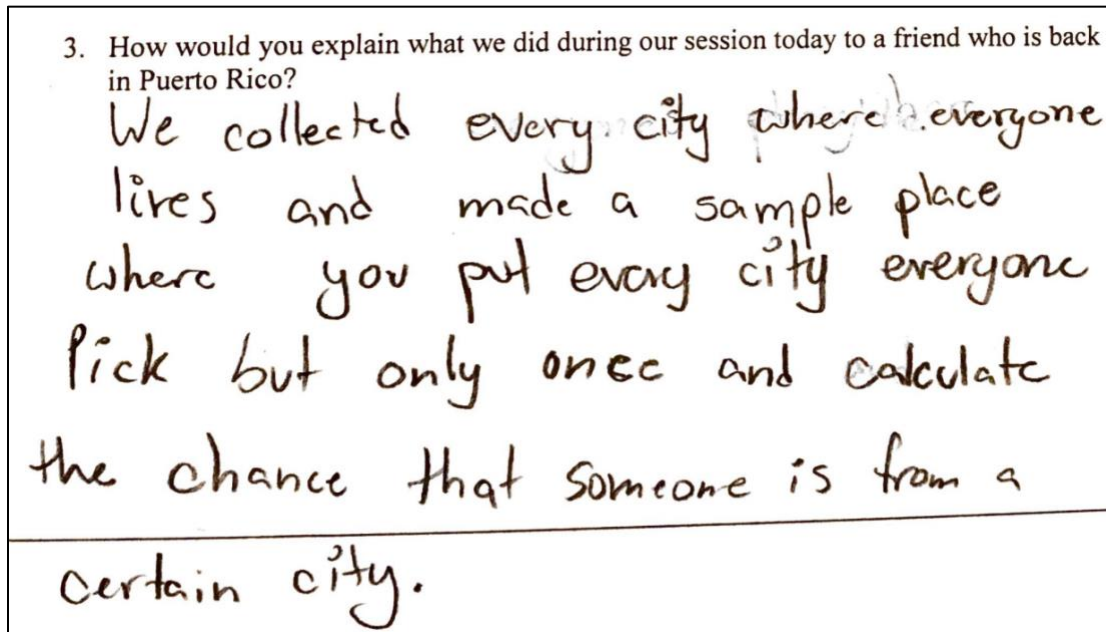 3. How would you explain what we did during our session today to a friend who is back
in Puerto Rico?
We collected every city where everyone
lives and made a sample place
where you put every city everyone
Pick but only once and calculate
the chance that someone is from a
certain city.